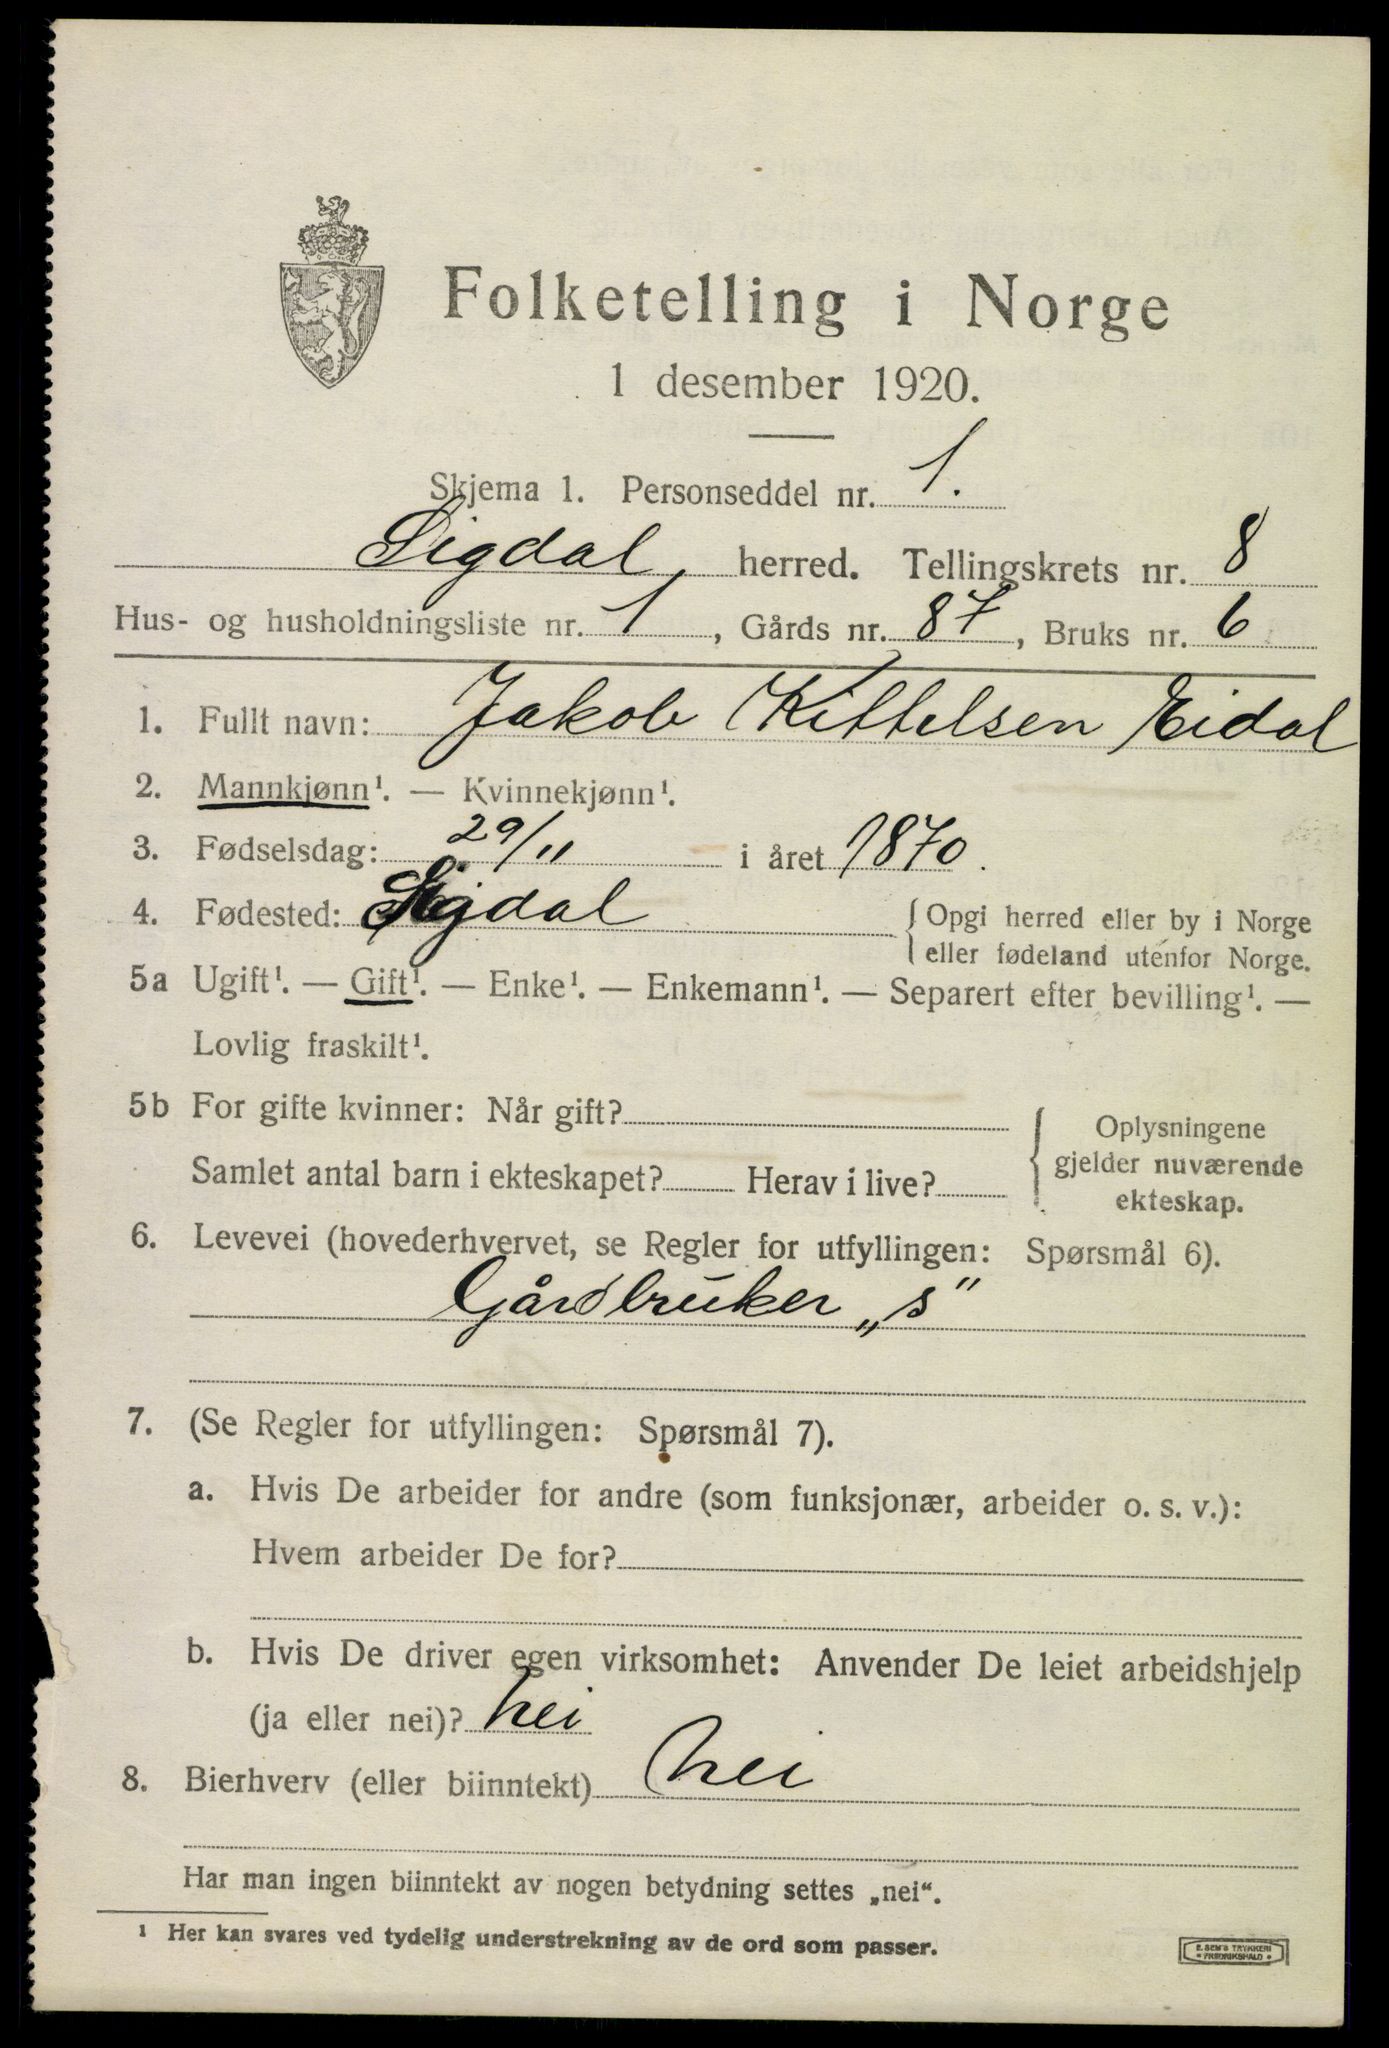 Folketelling i Norge
1 desember 1920.
Skjema 1. Personseddel nr. 1.
Sigdal herred. Tellingskrets nr. 8
Hus- og husholdningsliste nr. 1, Gårds nr. 87, Bruks nr. 6
1. Fullt navn: Jakob Kittelsen Eidal
2. Mannkjønn¹. — Kvinnekjønn¹.
3. Fødselsdag: 29/11 i året 1870.
4. Fødested: Sigdal { Opgi herred eller by i Norge
eller fødeland utenfor Norge.
5a Ugift¹. — Gift¹. — Enke¹. — Enkemann¹. — Separert efter bevilling¹. —
Lovlig fraskilt¹.
5b For gifte kvinner: Når gift?
Samlet antal barn i ekteskapet? Herav i live?
{ Oplysningene
gjelder nuværende
ekteskap.
6. Levevei (hovederhvervet, se Regler for utfyllingen: Spørsmål 6).
Gårdbruker „s"
7. (Se Regler for utfyllingen: Spørsmål 7).
a. Hvis De arbeider for andre (som funksjonær, arbeider o. s. v.):
Hvem arbeider De for?
b. Hvis De driver egen virksomhet: Anvender De leiet arbeidshjelp
(ja eller nei)? nei
8. Bierhverv (eller biinntekt) nei
Har man ingen biinntekt av nogen betydning settes „nei“.
¹ Her kan svares ved tydelig understrekning av de ord som passer.
E. SEM'S TRYKKERI
* FREDRIKSHALD *